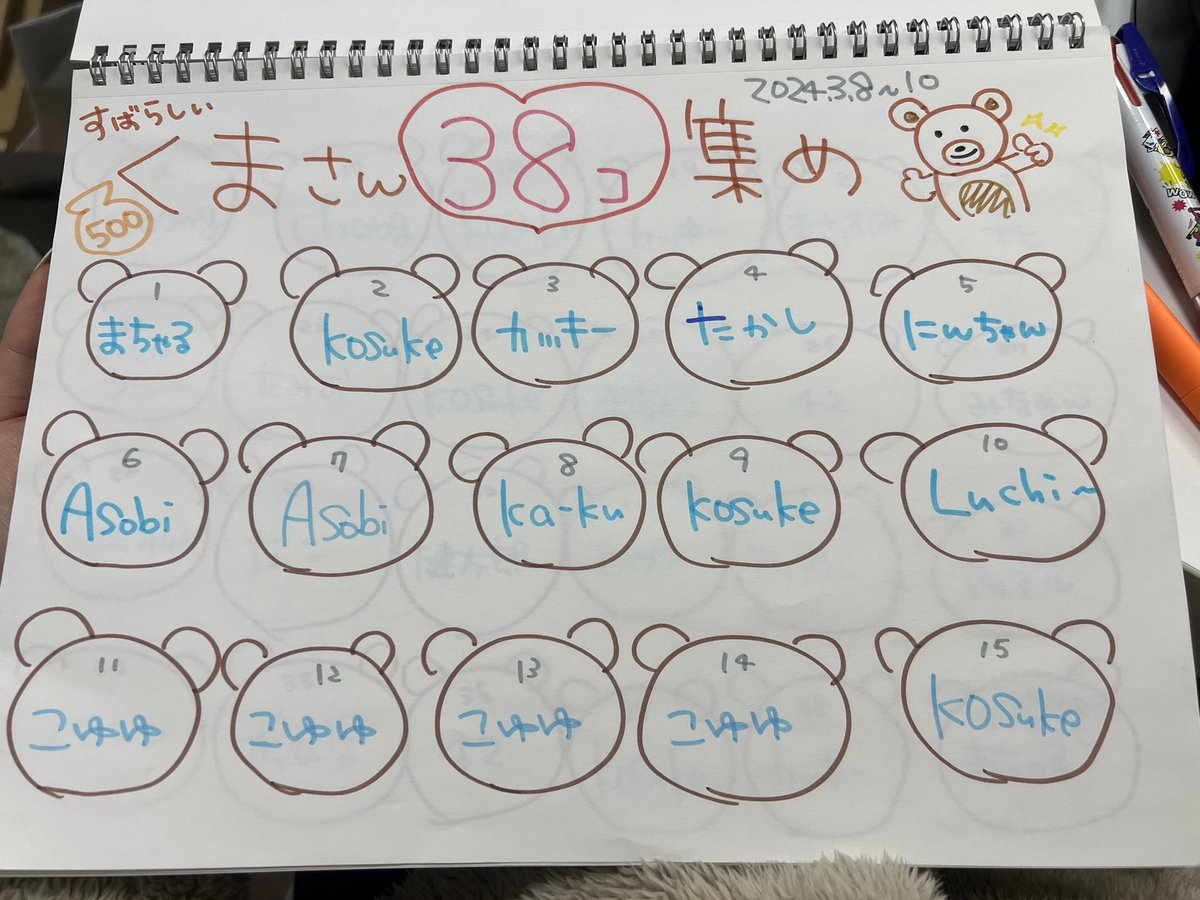 2024.3.8~10
すばらしい
くまさん38コ集め
500
1 2 3 4 5
まちゃる kosuke カッキー たかし にんちゃん
6 7 8 9 10
Asobi Asobi ka-ku kosuke Luchi~
11 12 13 14 15
こゆゆ こゆゆ こゆゆ こゆゆ kosuke